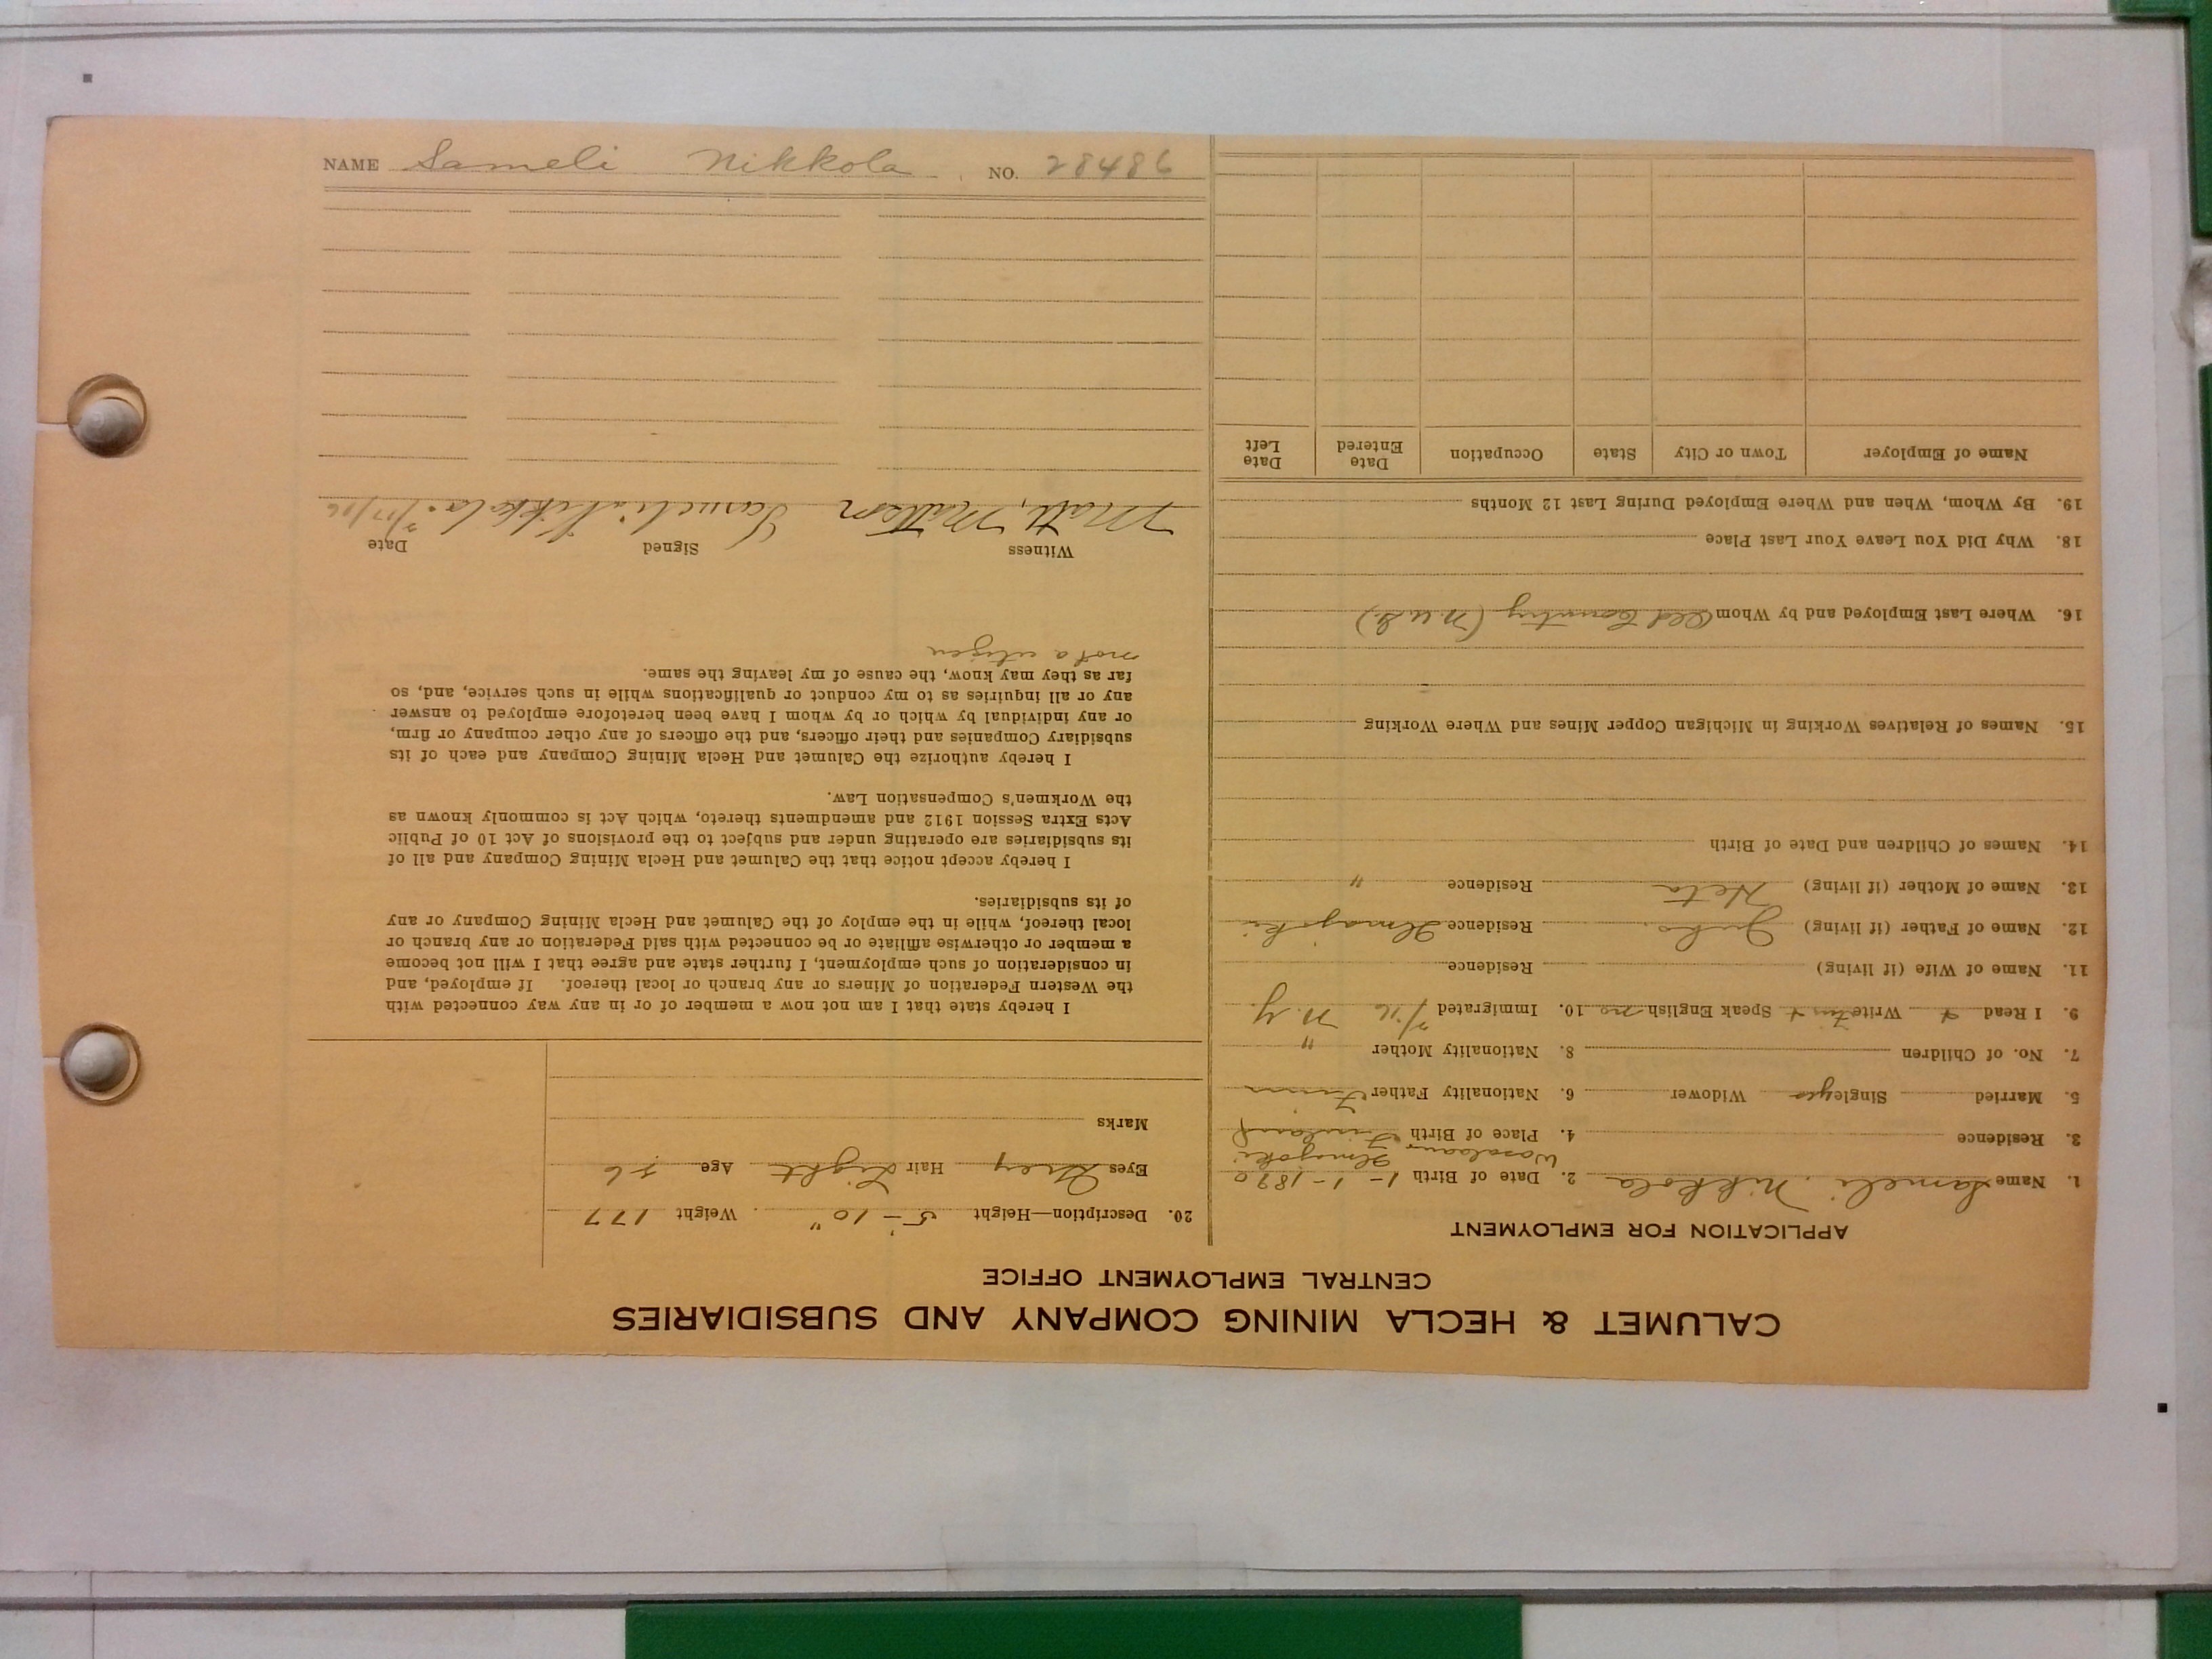 CALUMET & HECLA MINING COMPANY AND SUBSIDIARIES
CENTRAL EMPLOYMENT OFFICE
APPLICATION FOR EMPLOYMENT
1. Name Sameli Nikkola 2. Date of Birth 1-1-1890
Wasalaani Ilmajoki
3. Residence 4. Place of Birth Finland
5. Married Single yes Widower 6. Nationality Father Finn
7. No. of Children 8. Nationality Mother "
9. I Read + Write Finn + Speak English no 10. Immigrated N. Y.
11. Name of Wife (if living) Residence
12. Name of Father (if living) Juho Residence Ilmajoki
13. Name of Mother (if living) Heta Residence "
14. Names of Children and Date of Birth
15. Names of Relatives Working in Michigan Copper Mines and Where Working
16. Where Last Employed and by Whom Old Country (N.U.S.)
18. Why Did You Leave Your Last Place
19. By Whom, When and Where Employed During Last 12 Months
Name of Employer Town or City State Occupation Date Entered Date Left
20. Description—Height 5'-10" Weight 177
Eyes Grey Hair Light Age 26
Marks
I hereby state that I am not now a member of or in any way connected with
the Western Federation of Miners or any branch or local thereof. If employed, and
in consideration of such employment, I further state and agree that I will not become
a member or otherwise affiliate or be connected with said Federation or any branch or
local thereof, while in the employ of the Calumet and Hecla Mining Company or any
of its subsidiaries.
I hereby accept notice that the Calumet and Hecla Mining Company and all of
its subsidiaries are operating under and subject to the provisions of Act 10 of Public
Acts Extra Session 1912 and amendments thereto, which Act is commonly known as
the Workmen's Compensation Law.
I hereby authorize the Calumet and Hecla Mining Company and each of its
subsidiary Companies and their officers, and the officers of any other company or firm,
or any individual by which or by whom I have been heretofore employed to answer
any or all inquiries as to my conduct or qualifications while in such service, and, so
far as they may know, the cause of my leaving the same.
not a citizen
Witness Signed Date
Matt Mattson Sameli Nikkola
NAME Sameli Nikkola NO. 28486